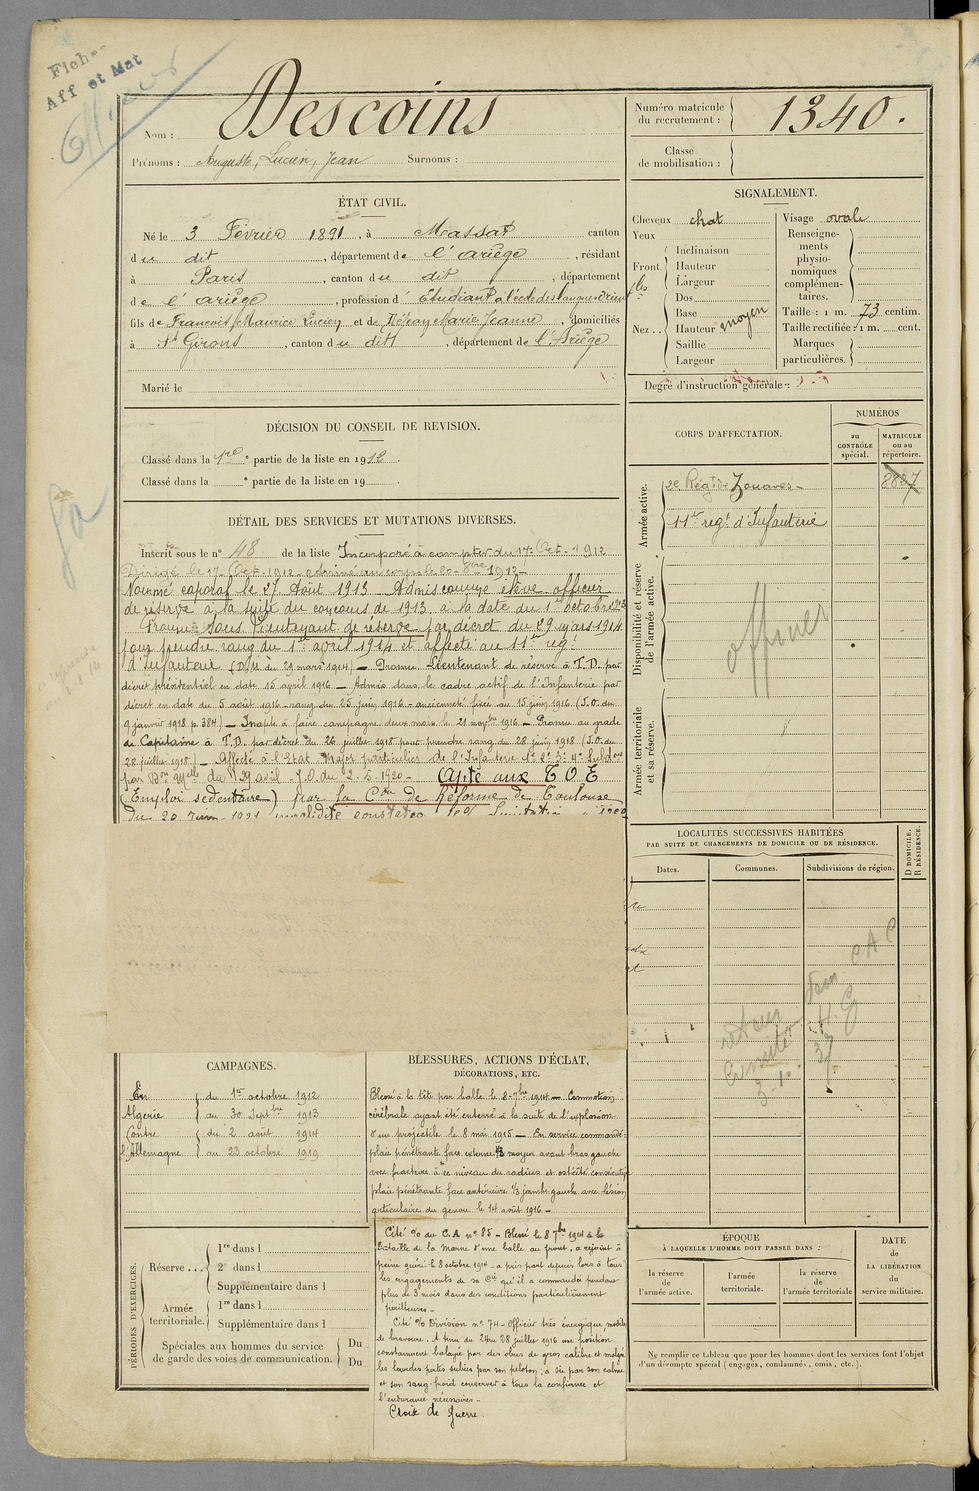 Fiches
Aff et Mat
Nom : Descoins
Prénoms : Auguste, Lucien, Jean Surnoms :
Numéro matricule du recrutement : 1340.
Classe de mobilisation :
ÉTAT CIVIL.
Né le 3 Février 1891, à Massat canton
du dit, département de l'ariège, résidant
à Paris, canton du dit, département
de l'ariège, profession d'étudiant à l'école des langues Orient
fils de François Maurice Lucien et de Déjean Marie Jeanne, domiciliés
à St Girons, canton du dit, département de l'Ariège
Marié le
SIGNALEMENT.
Cheveux chat
Yeux
Front. Inclinaison
Hauteur
Largeur
Nez .. Dos
Base
Hauteur moyen
Saillie
Largeur
Visage ovale
Renseigne-
ments
physio-
nomiques
complémen-
taires.
Taille : 1 m. 73 centim.
Taille rectifiée : 1 m. cent.
Marques
particulières.
Degré d'instruction générale :
DÉCISION DU CONSEIL DE REVISION.
Classé dans la 1re partie de la liste en 1912.
Classé dans la e partie de la liste en 19
DÉTAIL DES SERVICES ET MUTATIONS DIVERSES.
Inscrit sous le n° 48 de la liste Incorporé à compter du 17 Oct. 1912
Dirigé le 17 Oct. 1912 arrivé au corps le 20 8bre 1912
Nommé caporal le 27 Août 1913 Admis comme élève officier
de réserve à la suite du concours de 1913 à la date du 1er octobre 1913
Promu sous Lieutenant de réserve par décret du 29 mars 1914
pour prendre rang du 1er avril 1914 et affecté au 11e reg
d'Infanterie (D.M. du 29 mars 1914) — Promu Lieutenant de réserve à T.D. par
décret présidentiel en date 15 avril 1916 — Admis dans le cadre actif de l'Infanterie par
décret en date du 5 août 1916 - rang du 25 juin 1916 - ancienneté fixée au 15 juin 1916 (J.O. du
9 janvier 1918 p. 384) — Inapte à faire campagne deux mois le 21 novbre 1916 — Promu au grade
de Capitaine à T.D. par décret du 26 juillet 1918 pour prendre rang du 28 juin 1918 (J.O. du
28 juillet 1918) — Affecté à l'Etat Major particulier de l'Infanterie
du 29 avril - J.O. du 2-5-1920 - Apte aux T O E
(Emploi sédentaire) par la Con de Réforme de Toulouse
du 20 Juin 1921 invalidité
CORPS D'AFFECTATION.
NUMÉROS
au CONTRÔLE spécial.
MATRICULE ou au répertoire.
Armée active.
2e Régt de Zouaves - 8887
11e regt d'Infanterie
Disponibilité et réserve de l'armée active.
officier
Armée territoriale et sa réserve.
LOCALITÉS SUCCESSIVES HABITÉES
PAR SUITE DE CHANGEMENTS DE DOMICILE OU DE RÉSIDENCE.
Dates. Communes. Subdivisions de région.
D DOMICILE.
R RÉSIDENCE.
CAMPAGNES.
En du 1er octobre 1912
Algérie au 30 Septbre 1913
Contre du 2 août 1914
l'Allemagne au 23 octobre 1919
BLESSURES, ACTIONS D'ÉCLAT,
DÉCORATIONS, ETC.
Blessé à la tête par balle le 8-7bre 1914 — Commotion
cérébrale ayant été enterré à la suite de l'explosion
d'un projectile le 8 mai 1915 — En service commandé :
plaie pénétrante face externe 1/3 moyen avant bras gauche
avec fracture à ce niveau du radius et ostéité consécutive
plaie pénétrante face antérieure 1/3 jambe gauche avec lésion
articulaire du genou le 14 août 1916 -
Cité % du C.A n° 85 - Blessé le 8 7bre 1914 à la
bataille de la Marne d'une balle au front, a rejoint à
peine guéri le 8 octobre 1914 - a pris part depuis lors à tous
les engagements de sa Cie qu'il a commandée pendant
plus de 3 mois dans des conditions particulièrement
périlleuses -
Cité % Division n° 74 - Officier très énergique modèle
de bravoure. A tenu du 24 au 28 juillet 1916 une position
constamment balayée par des obus de gros calibre et malgré
les lourdes pertes subies par son peloton ; a su par son calme
et son sang-froid conserver à tous la confiance et
l'endurance nécessaires -
Croix de Guerre
PÉRIODES D'EXERCICES.
Réserve ... 1re dans l
2e dans l
Supplémentaire dans l
Armée territoriale. 1re dans l
Supplémentaire dans l
Spéciales aux hommes du service
de garde des voies de communication. Du
Du
ÉPOQUE
À LAQUELLE L'HOMME DOIT PASSER DANS :
la réserve de l'armée active.
l'armée territoriale.
la réserve de l'armée territoriale
DATE
de
LA LIBÉRATION
du
service militaire.
Ne remplir ce tableau que pour les hommes dont les services font l'objet
d'un décompte spécial (engagés, condamnés, omis, etc.).